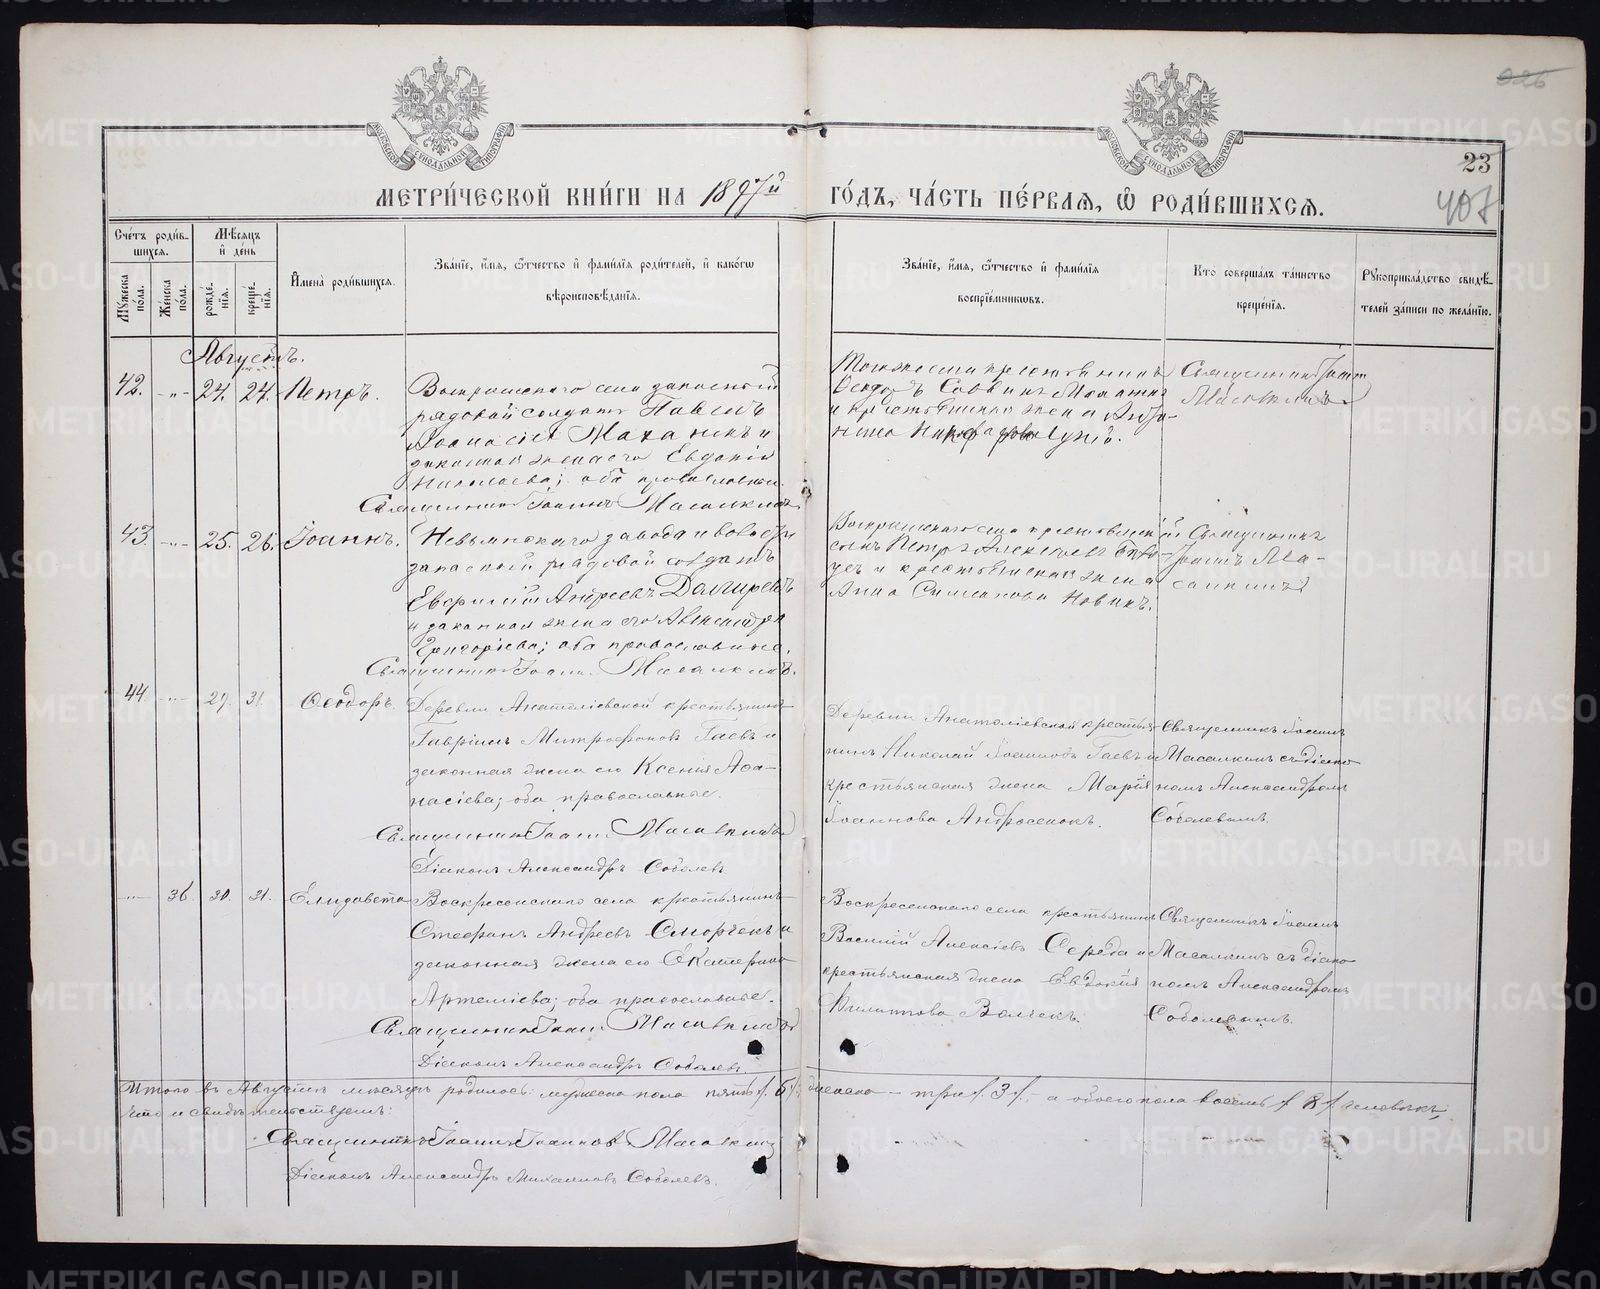 23
407
МЕТРИ́ЧЕСКОЙ КНИ́ГИ НА 1897й ГО́ДЪ, ЧА́СТЬ ПЕ́РВАѦ, Ѽ РОДИ́ВШИХСѦ.
Сче́тъ роди́в-
шихсѧ.
Мѣ́сѧцъ
и҆ де́нь
Мꙋ́жеска
по́ла.
Же́нска
по́ла.
рожде́-
нїѧ.
креще́-
нїѧ.
И҆мена̀ роди́вшихсѧ.
Зва́нїе, и҆́мѧ, ѻ҆́тчество и҆ фами́лїѧ роди́телей, и҆ како́гѡ
вѣроисповѣ́данїѧ.
Зва́нїе, и҆́мѧ, ѻ҆́тчество и҆ фами́лїѧ
воспрїе́мникѡвъ.
Кто̀ соверша́лъ та́инство
креще́нїѧ.
Рꙋкоприкла́дство свидѣ́-
телей за́писи по жела́нїю.
Августъ.
42. -"- 24. 24. Петръ.
Воскресенскаго села запасный
рядовой солдатъ Павелъ
и
законная жена его Евдокія
Николаева; оба православные.
Священникъ Іоаннъ Масалкинъ
Тогоже села крестьянинъ
Ѳеодоръ Саввинъ
и крестьянская жена
Священникъ Іоаннъ
Масалкинъ
43. -"- 25. 26. Іоаннъ.
Невьянскаго завода и волости
запасный рядовой солдатъ
Андреевъ
и законная жена его Александра
Григоріева; оба православные.
Священникъ Іоаннъ Масалкинъ.
Воскресенскаго села крестьянскій
сынъ Петръ Алексіевъ
и крестьянская жена
Анна Симеонова Новикъ.
Священникъ
Іоаннъ Ма-
салкинъ
44. -"- 29. 31. Ѳеодоръ.
Деревни Анатоліевской крестьянинъ
Гавріилъ Митрофановъ Гаевъ и
законная жена его Ксенія Аѳа-
насіева; оба православные.
Священникъ Іоаннъ Масалкинъ
Діаконъ Александръ Соболевъ
Деревни Анатоліевской крестья-
нинъ Николай Іоанновъ Гаевъ и
крестьянская жена Марія
Іоаннова Андросенокъ.
Священникъ Іоаннъ
Масалкинъ съ діако-
номъ Александромъ
Соболевымъ.
-"- 36. 30. 31. Елизавета
Воскресенскаго села крестьянинъ
Стефанъ Андреевъ Сморчекъ и
законная жена его Екатерина
Артеміева; оба православные.
Священникъ Іоаннъ Масалкинъ
Діаконъ Александръ Соболевъ.
Воскресенскаго села крестьянинъ
Василій Алексіевъ Середа и
крестьянская жена Евдокія
Филиппова Волчекъ.
Священникъ Іоаннъ
Масалкинъ съ діако-
номъ Александромъ
Соболевымъ.
Итого въ Августѣ мѣсяцѣ родилось: мужеска пола пять /5/, женска – три /3/, – а обоего пола восемь /8/ человѣкъ,
что и свидѣтельствуемъ:
Священникъ Іоаннъ Іоанновъ Масалкинъ
Діаконъ Александръ Михаиловъ Соболевъ.
METRIKI.GASO-URAL.RU